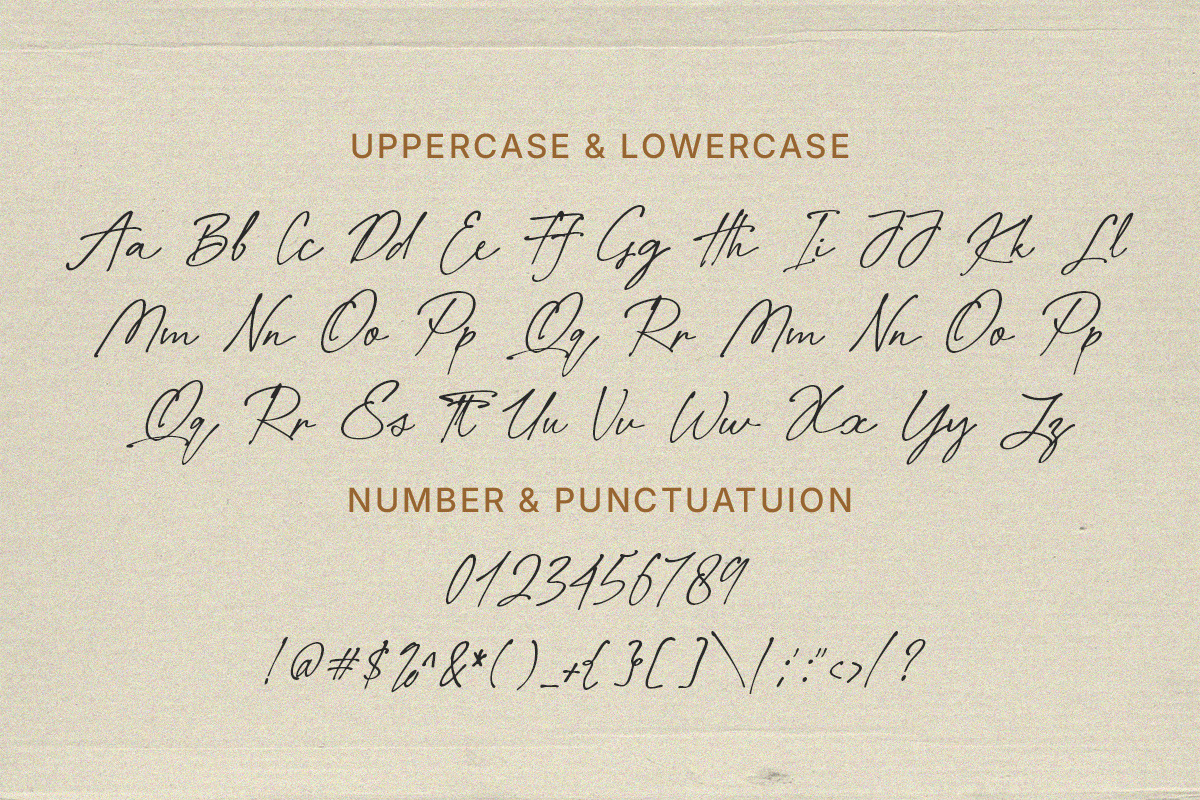 UPPERCASE & LOWERCASE
Aa Bb Cc Dd Ee Ff Gg Hh Ii JJ Kk Ll
Mm Nn Oo Pp Qq Rr Mm Nn Oo Pp
Qq Rr Ss Tt Uu Vv Ww Xx Yy Zz
NUMBER & PUNCTUATUION
0123456789
!@#$%^&*()_+{}[]\|;':"<>/?